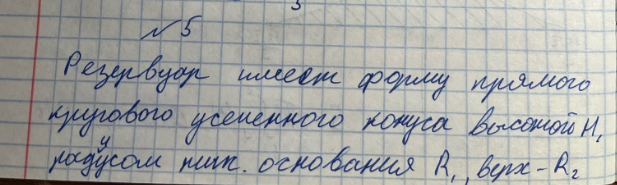 № 5
Резервуар имеет форму прямого
кругового усеченного конуса высотой H,
радиусом ниж. основания R₁, верх - R₂